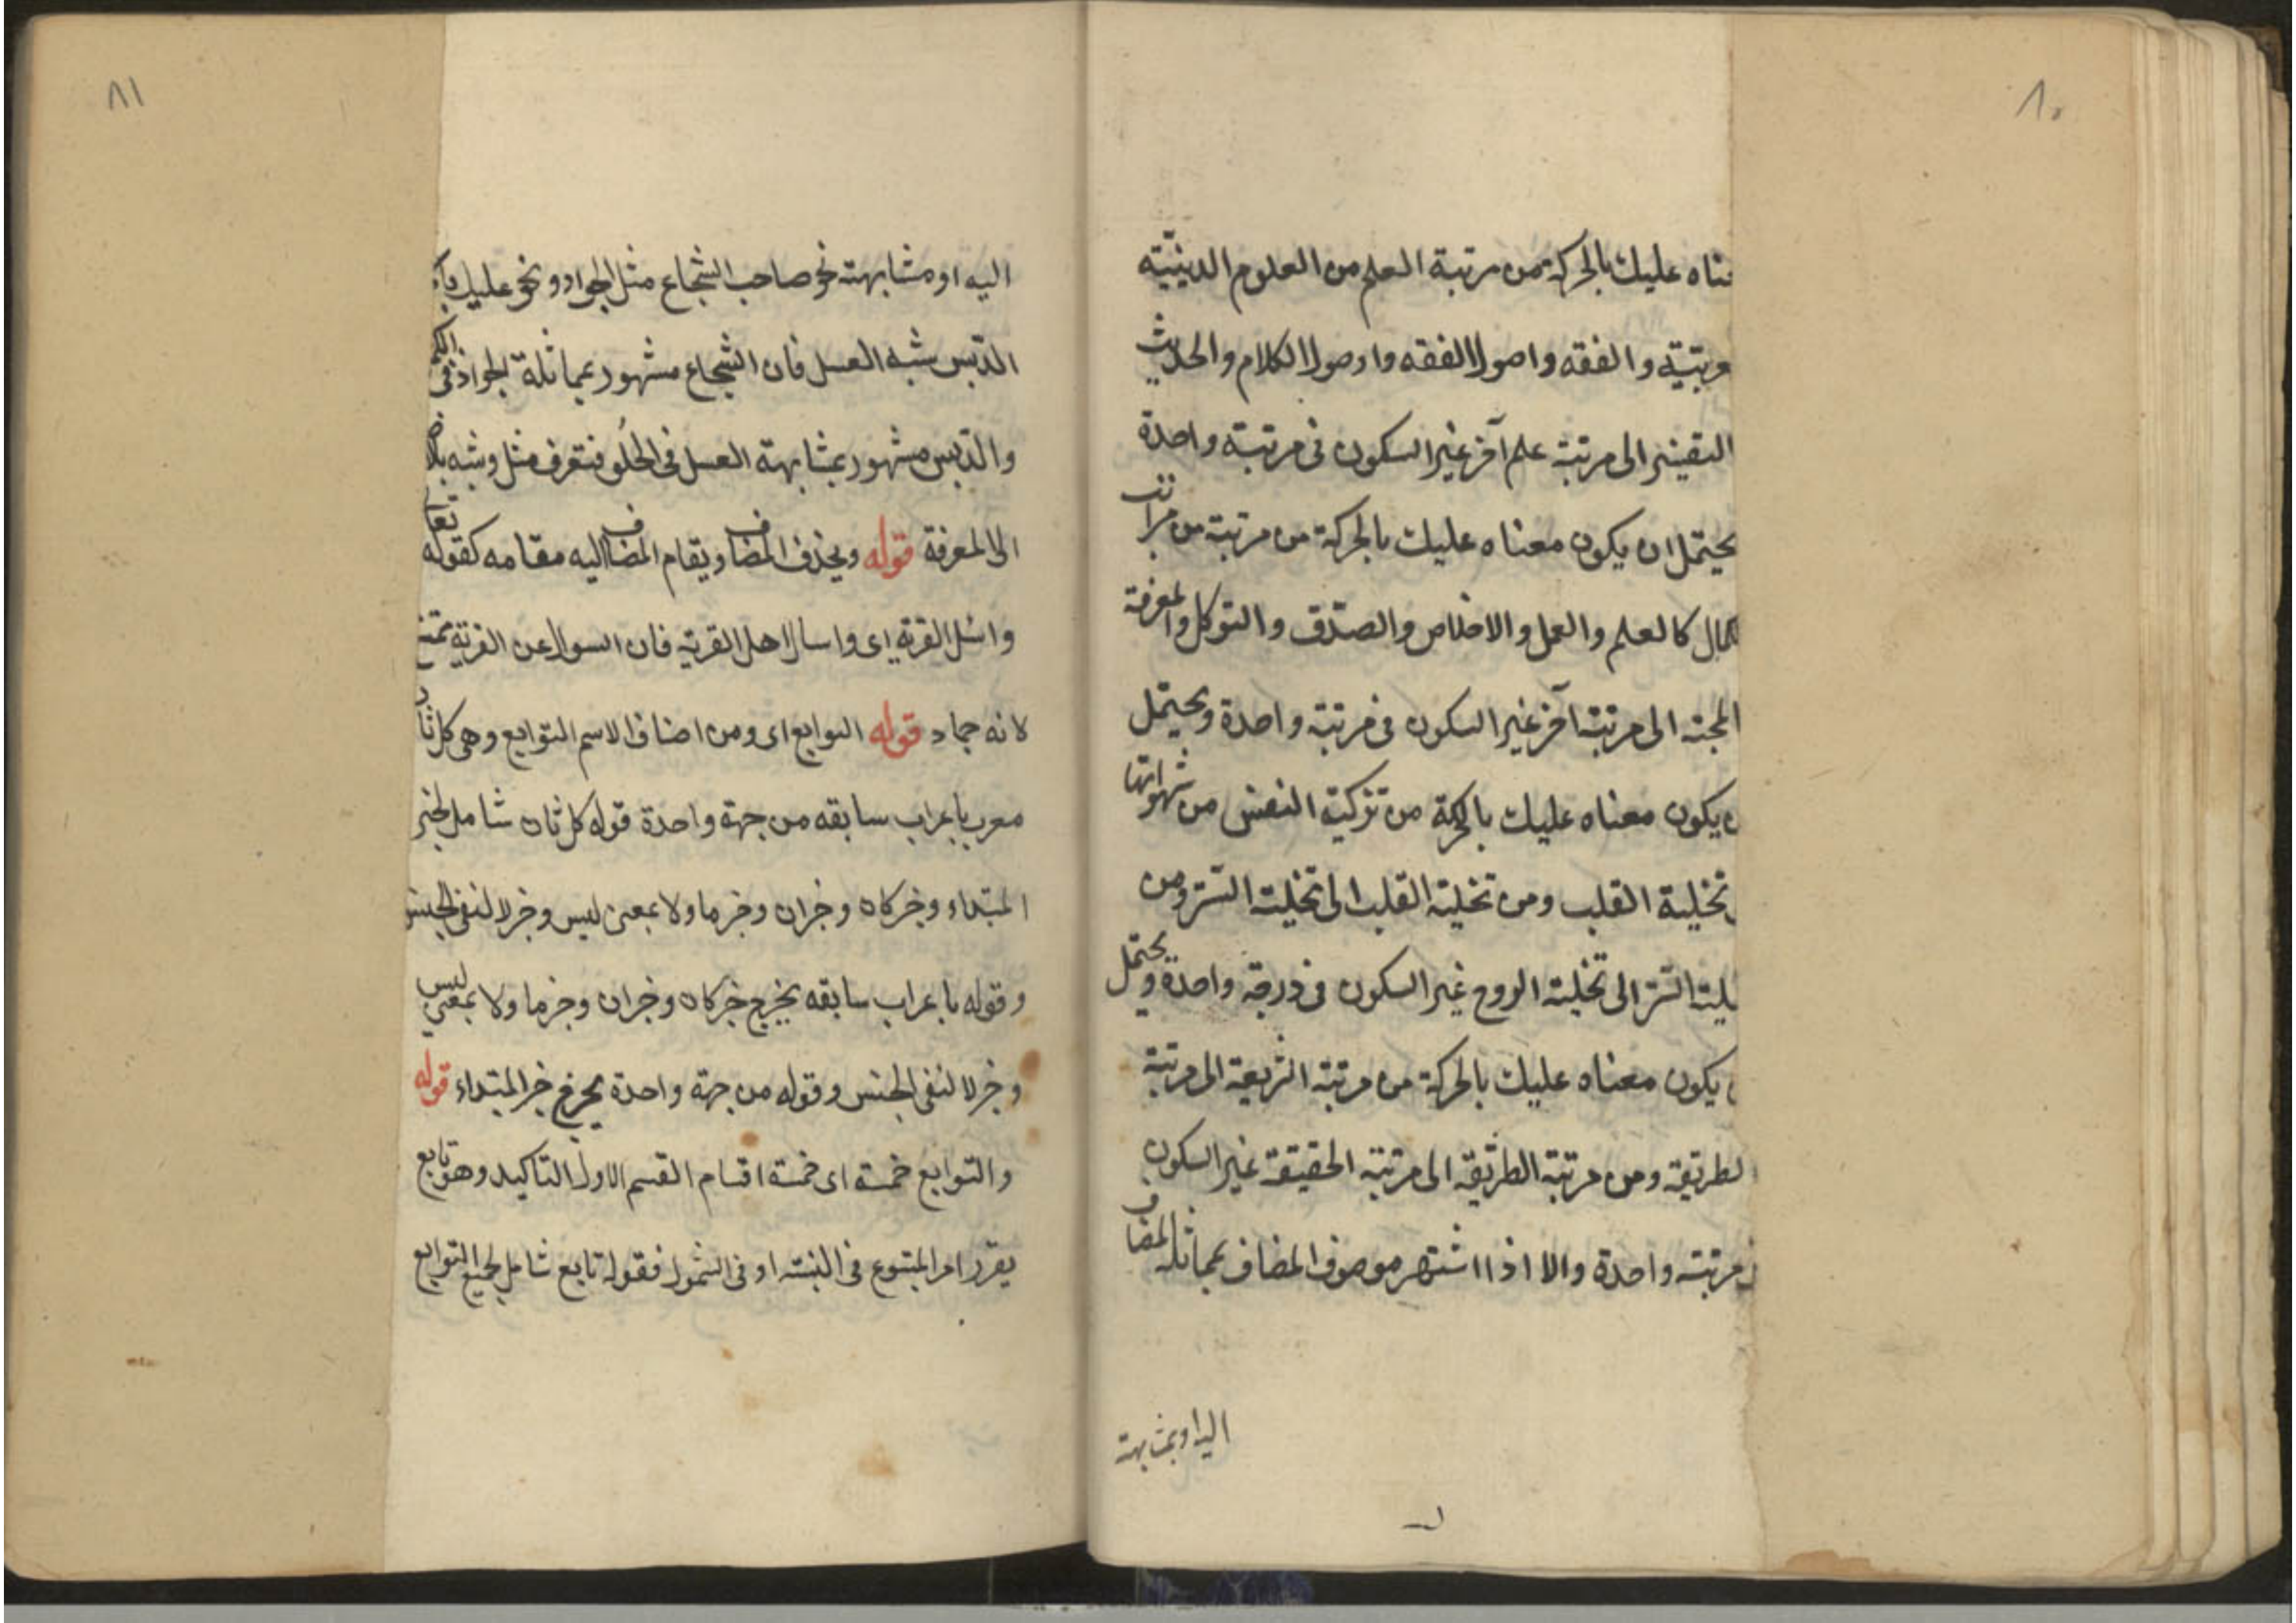 ٨٠
معناه عليك بالحركة من مرتبة العلم من العلوم الدينيّة
عربيّتية والفقه واصول الفقه واصول الكلام والحديث
التفسير الى مرتبة علم آخر غير السكون فى مرتبة واحدة
يحتمل ان يكون معناه عليك بالحركة من مرتبة من مراتب
الكمال كالعلم والعمل والاخلاص والصدّق والتوكل والمعرفة
المحبته الى مرتبة آخر غير السكون فى مرتبة واحدة ويحتمل
ن يكون معناه عليك بالحركة من تزكية النفس من شهواتها
تخلية القلب ومن تخلية القلب الى تخلية السّرّ ومن
تخلية السّرّ الى تخلية الروح غير السكون فى درجة واحدة ويحتمل
ن يكون معناه عليك بالحركة من مرتبة الشريعة الى مرتبة
لطريقة ومن مرتبة الطريقة الى مرتبة الحقيقة غير السكون
فى مرتبته واحدة والا اذا اشتهر موصوف المضاف بمماثلة المضاف
اليه او بمشابهته
٨١
اليه او مشابهته نحو صاحب الشجاع مثل الجواد ونحو عليك
الدّبس شبه العسل فان الشجاع مشهور بمماثلة الجواد فى الكرم
والدّبس مشهور بمشابهة العسل فى الحُلو فتعرف مثل وشبه
الى المعرفة قوله ويحذف المضاف ويقام المضاف اليه مقامه كقوله تعا
واسئل القرية اى واسال اهل القرية فان السوال عن القرية ممتنع
لانه جماد قوله التوابع اى ومن اصناف الاسم التوابع وهى كل ثان
معرب باعراب سابقه من جهة واحدة قوله كل ثان شامل لخبر
المبتداء وخبر كان وخبر ان وخبر ما ولا بمعنى ليس وخبر لا لنفى الجنس
وقوله باعراب سابقه يخرج خبر كان وخبر ان وخبر ما ولا بمعنى ليس
وخبر لا لنفى الجنس وقوله من جهة واحدة يخرج خبر المبتداء قوله
والتوابع خمسة اى خمسة اقسام القسم الاول التاكيد وهو تابع
يقرر امر المتبوع فى النسبته او فى الشمول فقوله تابع شامل لجميع التوابع